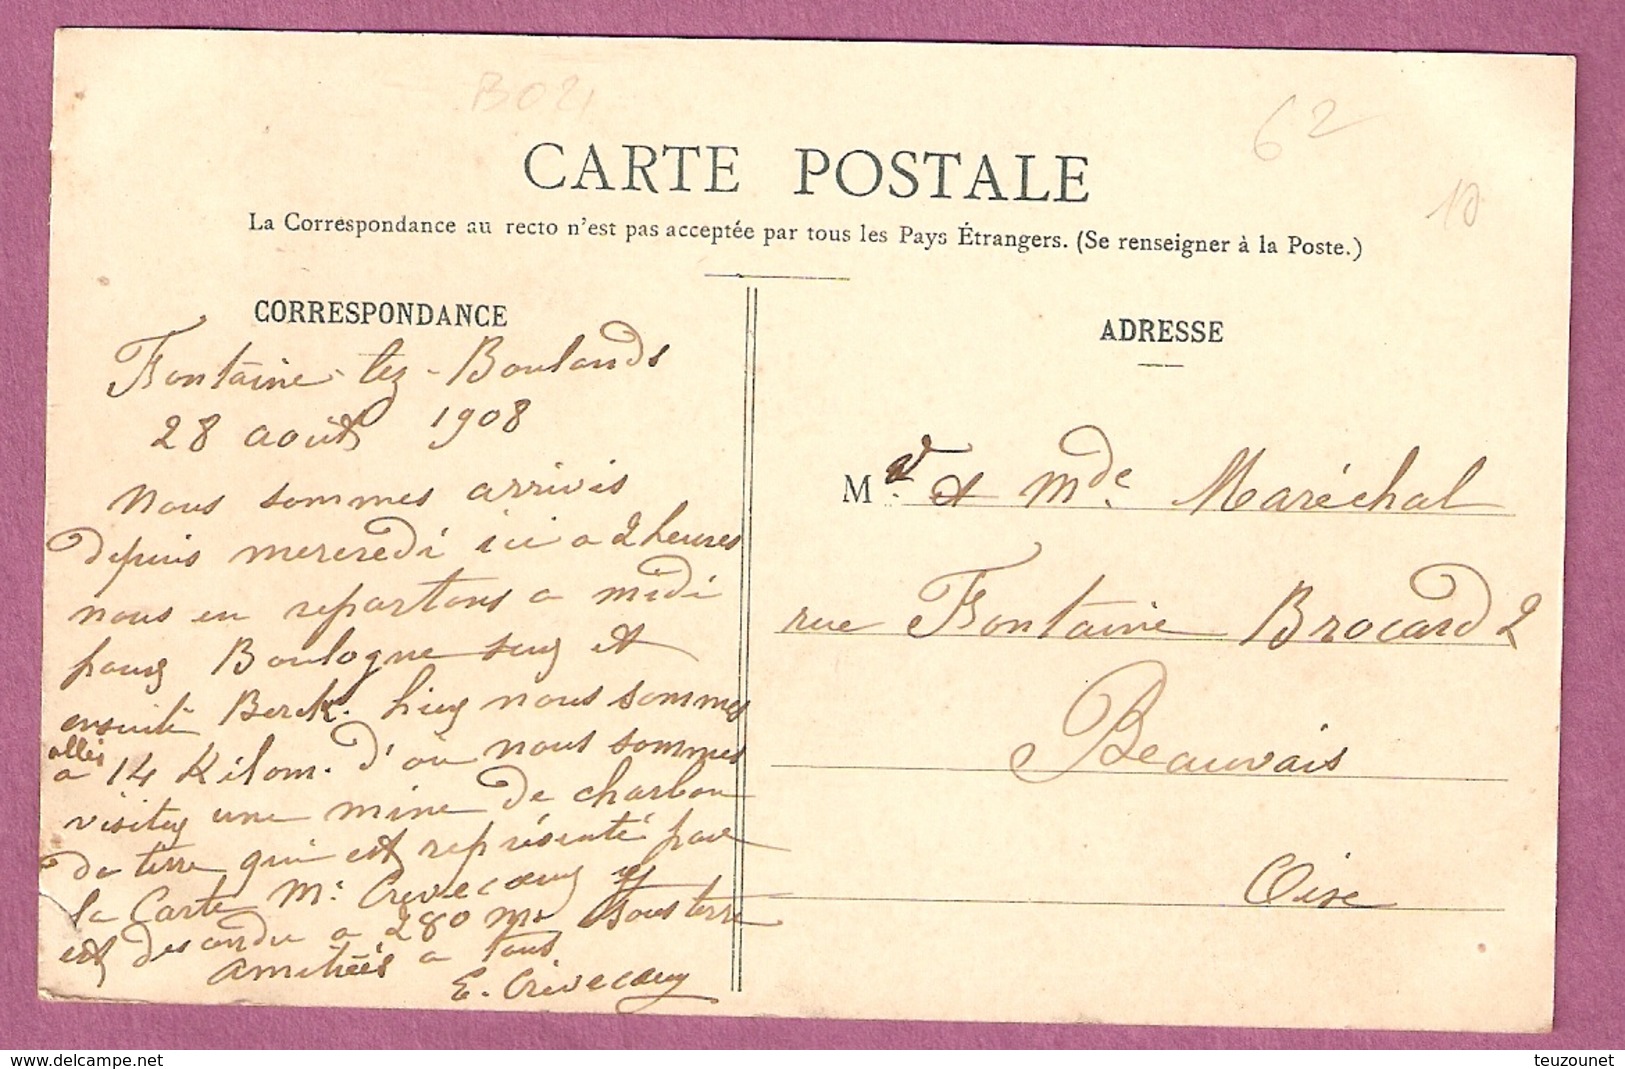 B021
62
10
CARTE POSTALE
La Correspondance au recto n'est pas acceptée par tous les Pays Étrangers. (Se renseigner à la Poste.)
CORRESPONDANCE
Fontaine-lez-Boulands
28 août 1908
nous sommes arrivés
depuis mercredi ici a 2 heures
nous en repartons a midi
pour Boulogne sur et
ensuite Berck. hier nous sommes
allés
a 14 Kilom. d'où nous sommes
visiter une mine de charbon
de terre qui est représenté par
la Carte Mr Crevecoeur y
est descendu a 280 m. sous terre
amitiés a tous
E. Crèvecoeur
ADRESSE
Mr et Mde Maréchal
rue Fontaine Brocard 2
Beauvais
Oise
www.delcampe.net
teuzounet